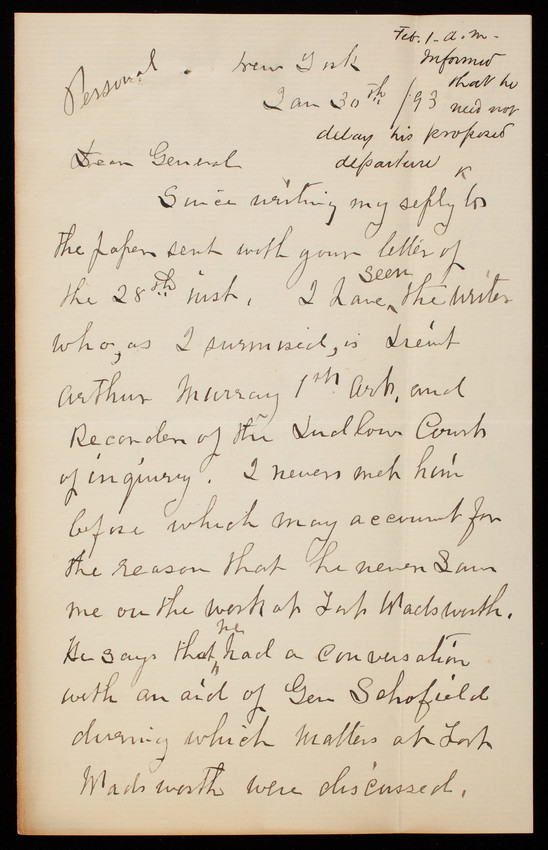 Feb. 1 - a.m. -
Informed
that he
need not
delay his proposed
departure
K
Personal.
New York
Jan 30th /93
Dear General
Since writing my reply to
the paper sent with your letter of
the 28th inst. I have seen the writer
who, as I surmised, is Lieut
Arthur Murray 1st Art, and
Recorder of the Ludlow Court
of inquiry. I never met him
before which may account for
the reason that he never saw
me on the work at Fort Wadsworth.
He says that he had a conversation
with an aid of Gen Schofield
during which matters at Fort
Wadsworth were discussed.